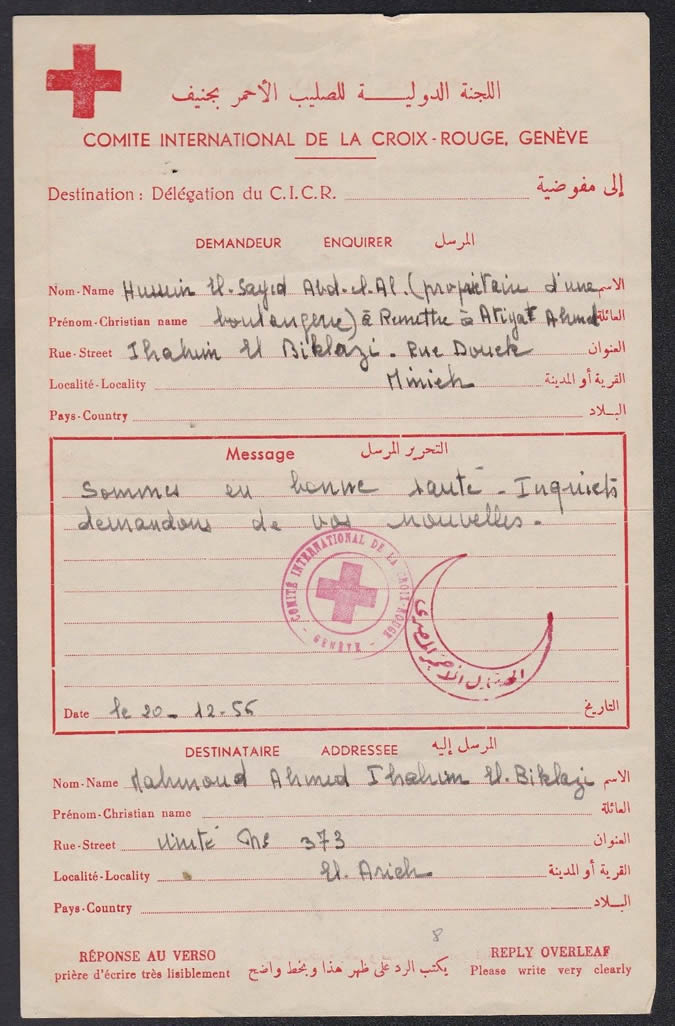 اللجنة الدولية للصليب الأحمر بجنيف
COMITE INTERNATIONAL DE LA CROIX-ROUGE, GENÈVE
Destination: Délégation du C.I.C.R. إلى مفوضية
DEMANDEUR ENQUIRER المرسل
Nom-Name Hussein El-Sayed Abd-el-Al. (propriétain d'une الاسم
Prénom-Christian name boulangerie) à Remettre à Atiyat Ahmed العائلة
Rue-Street Ibahim El Biklazi. Rue Douek العنوان
Localité-Locality Minieh القرية أو المدينة
Pays-Country البلاد
Message التحرير المرسل
Sommes en bonne santé - Inquiets
demandons de vos nouvelles.
COMITÉ INTERNATIONAL DE LA CROIX-ROUGE - GENÈVE -
الهلال الأحمر المصرى
Date le 20-12-56 التاريخ
DESTINATAIRE ADDRESSEE المرسل إليه
Nom-Name Mahmoud Ahmed Ibahim El-Biklazi الاسم
Prénom-Christian name العائلة
Rue-Street Unité No 373 العنوان
Localité-Locality El-Arich القرية أو المدينة
Pays-Country البلاد
8
RÉPONSE AU VERSO يكتب الرد على ظهر هذا وبخط واضح REPLY OVERLEAF
prière d'écrire très lisiblement Please write very clearly